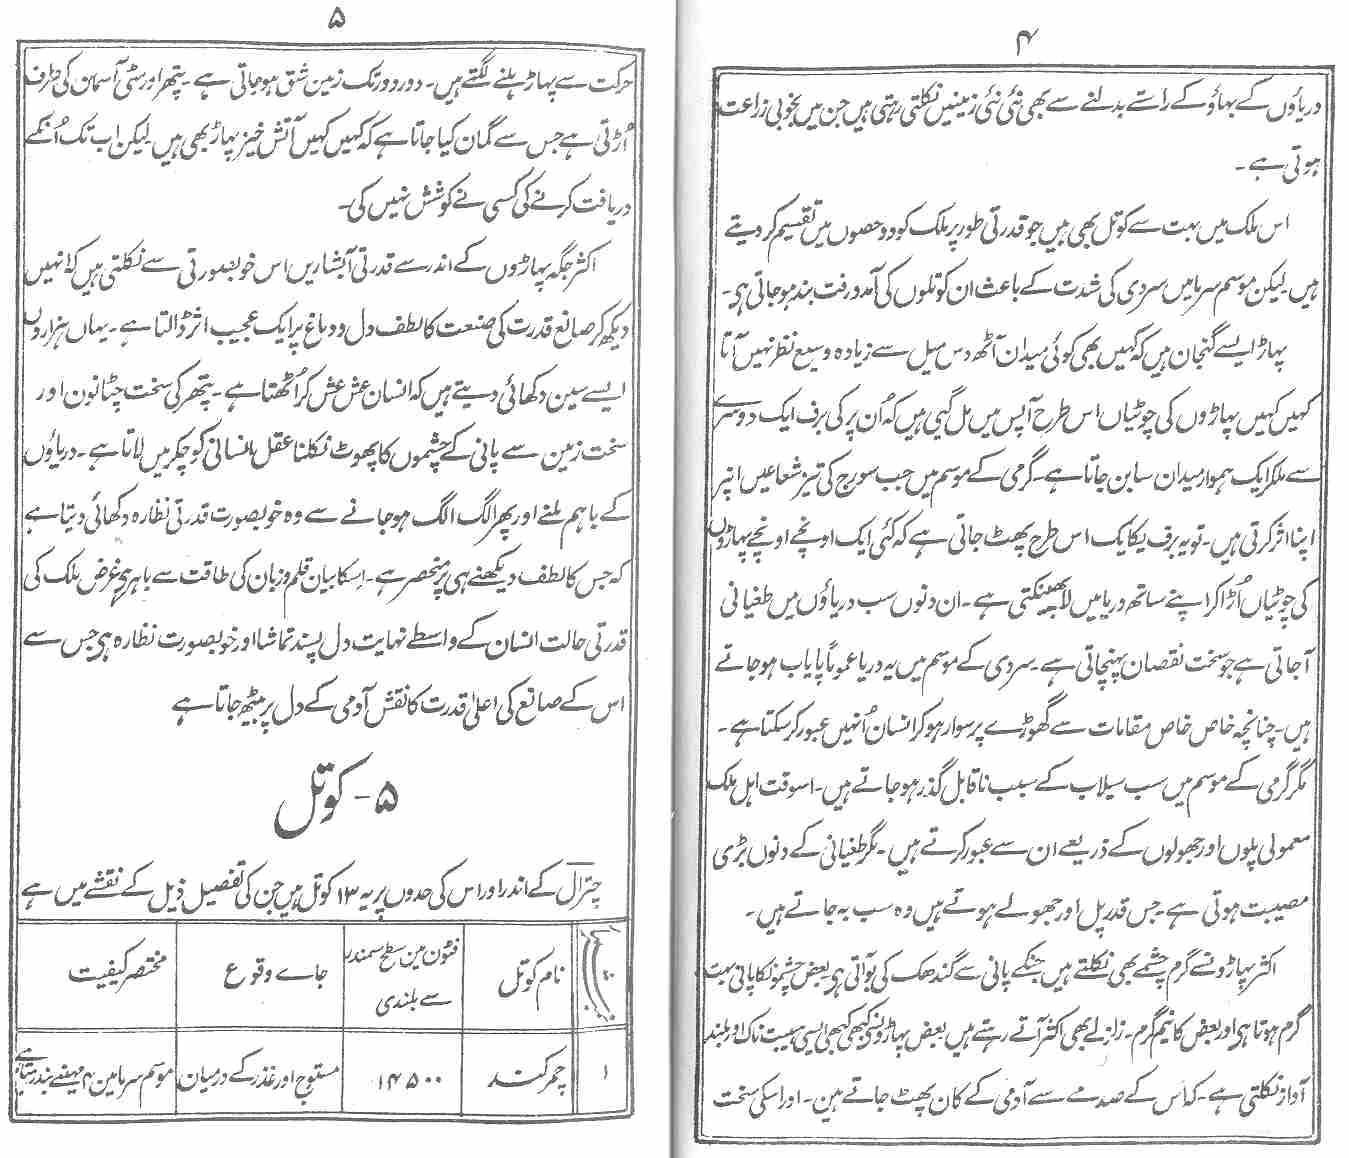 ۴
دریاؤں کے بہاؤ کے راستے بدلنے سے بھی نئی نئی زمینیں نکلتی رہتی ہیں جن میں بخوبی زراعت
ہوتی ہے۔
اس ملک میں بہت سے کوتل بھی ہیں جو قدرتی طور پر ملک کو دو حصوں میں تقسیم کر دیتے
ہیں لیکن موسم سرما میں سردی کی شدت کے باعث ان کوتلوں کی آمد و رفت بند ہو جاتی ہی۔
پہاڑ ایسے گنجان ہیں کہ کہیں بھی کوئی میدان آٹھ دس میل سے زیادہ وسیع نظر نہیں آتا
کہیں کہیں پہاڑوں کی چوٹیاں اس طرح آپس میں مل گیٔی ہیں کہ اُن پر کی برف ایک دوسرے
سے ملکر ایک ہموار میدان سا بن جاتا ہے۔ گرمی کے موسم میں جب سورج کی تیز شعاعیں انپر
اپنا اثر کرتی ہیں۔ تو یہ برف یکایک اس طرح پھٹ جاتی ہے کہ کئی ایک اونچے اونچے پہاڑوں
کی چوٹیاں اُڑا کر اپنے ساتھ دریا میں لا پھینکتی ہے۔ ان دنوں سب دریاؤں میں طغیانی
آجاتی ہے جو سخت نقصان پہنچاتی ہے۔ سردی کے موسم میں یہ دریا عموماً پایاب ہو جاتے
ہیں۔ چنانچہ خاص خاص مقامات سے گھوڑے پر سوار ہو کر انسان اُنہیں عبور کر سکتا ہے۔
مگر گرمی کے موسم میں سب سیلاب کے سبب ناقابل گذر ہو جاتے ہیں۔ اسوقت اہل ملک
معمولی پلوں اور جھولوں کے ذریعے ان سے عبور کرتے ہیں۔ مگر طغیانی کے دنوں بڑی
مصیبت ہوتی ہے۔ جس قدر پل اور جھولے ہوتے ہیں وہ سب بہ جاتے ہیں۔
اکثر پہاڑونسے گرم چشمے بھی نکلتے ہیں جنکے پانی سے گندھک کی بو آتی ہی بعض چشمونکا پانی بہت
گرم ہوتا ہی اور بعض کا نیم گرم۔ زلزلے بھی اکثر آتے رہتے ہیں بعض پہاڑونسے کبھی کبھی ایسی ہیبت ناک اور بلند
آواز نکلتی ہے۔ کہ اس کے صدمے سے آدمی کے کان پھٹ جاتے ہین۔ اور اسکی سخت
۵
حرکت سے پہاڑ ہلنے لگتے ہیں۔ دور دور تک زمین شق ہو جاتی ہے۔ پتھر اور مٹی آسمان کی طرف
اُڑتی ہے جس سے گمان کیا جاتا ہے کہ کہیں کہیں آتش خیز پہاڑ بھی ہیں لیکن اب تک اُنکے
دریافت کرنے کی کسی نے کوشش نہیں کی۔
اکثر جگہ پہاڑوں کے اندر سے قدرتی آبشاریں اس خوبصورتی سے نکلتی ہیں کہ انہیں
دیکھ کر صانع قدرت کی صنعت کا لطف دل و دماغ پر ایک عجیب اثر ڈالتا ہے۔ یہاں ہزاروں
ایسے سین دکھائی دیتے ہیں کہ انسان عش عش کر اُٹھتا ہے۔ پتھر کی سخت چٹانون اور
سخت زمین سے پانی کے چشموں کا پھوٹ نکلنا عقل انسانی کو چکر میں لاتا ہے۔ دریاؤں
کے باہم ملنے اور پھر الگ الگ ہو جانے سے وہ خوبصورت قدرتی نظارہ دکھائی دیتا ہے
کہ جس کا لطف دیکھنے ہی پر منحصر ہے۔ اسکا بیان قلم و زبان کی طاقت سے باہر ہی غرض ملک کی
قدرتی حالت انسان کے واسطے نہایت دل پسند تماشا اور خوبصورت نظارہ ہی جس سے
اس کے صانع کی اعلیٰ قدرت کا نقش آدمی کے دل پر بیٹھ جاتا ہے
۵۔ کوتل
چترال کے اندر اور اس کی حدوں پر یہ ۱۳ کوتل ہیں جن کی تفصیل ذیل کے نقشے میں ہے
نام کوتل
فٹون مین سطح سمندر
سے بلندی
جاے وقوع
مختصر کیفیت
۱
چمرکند
۱۴۵۰۰
مستوج اور غذر کے درمیان
موسم سرما مین ۴ مہینے بند رہتا ہے